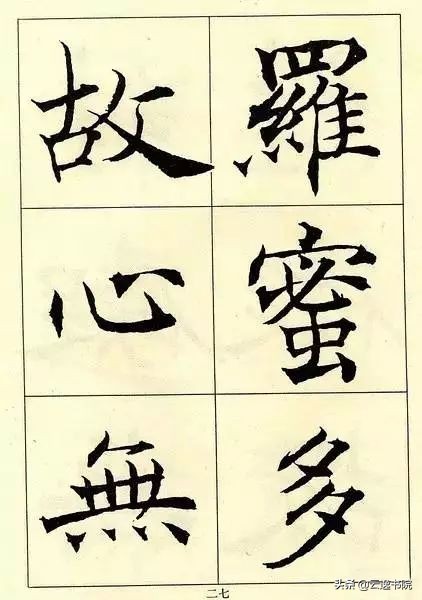 羅蜜多
故心無
二七
头条@云逸书院